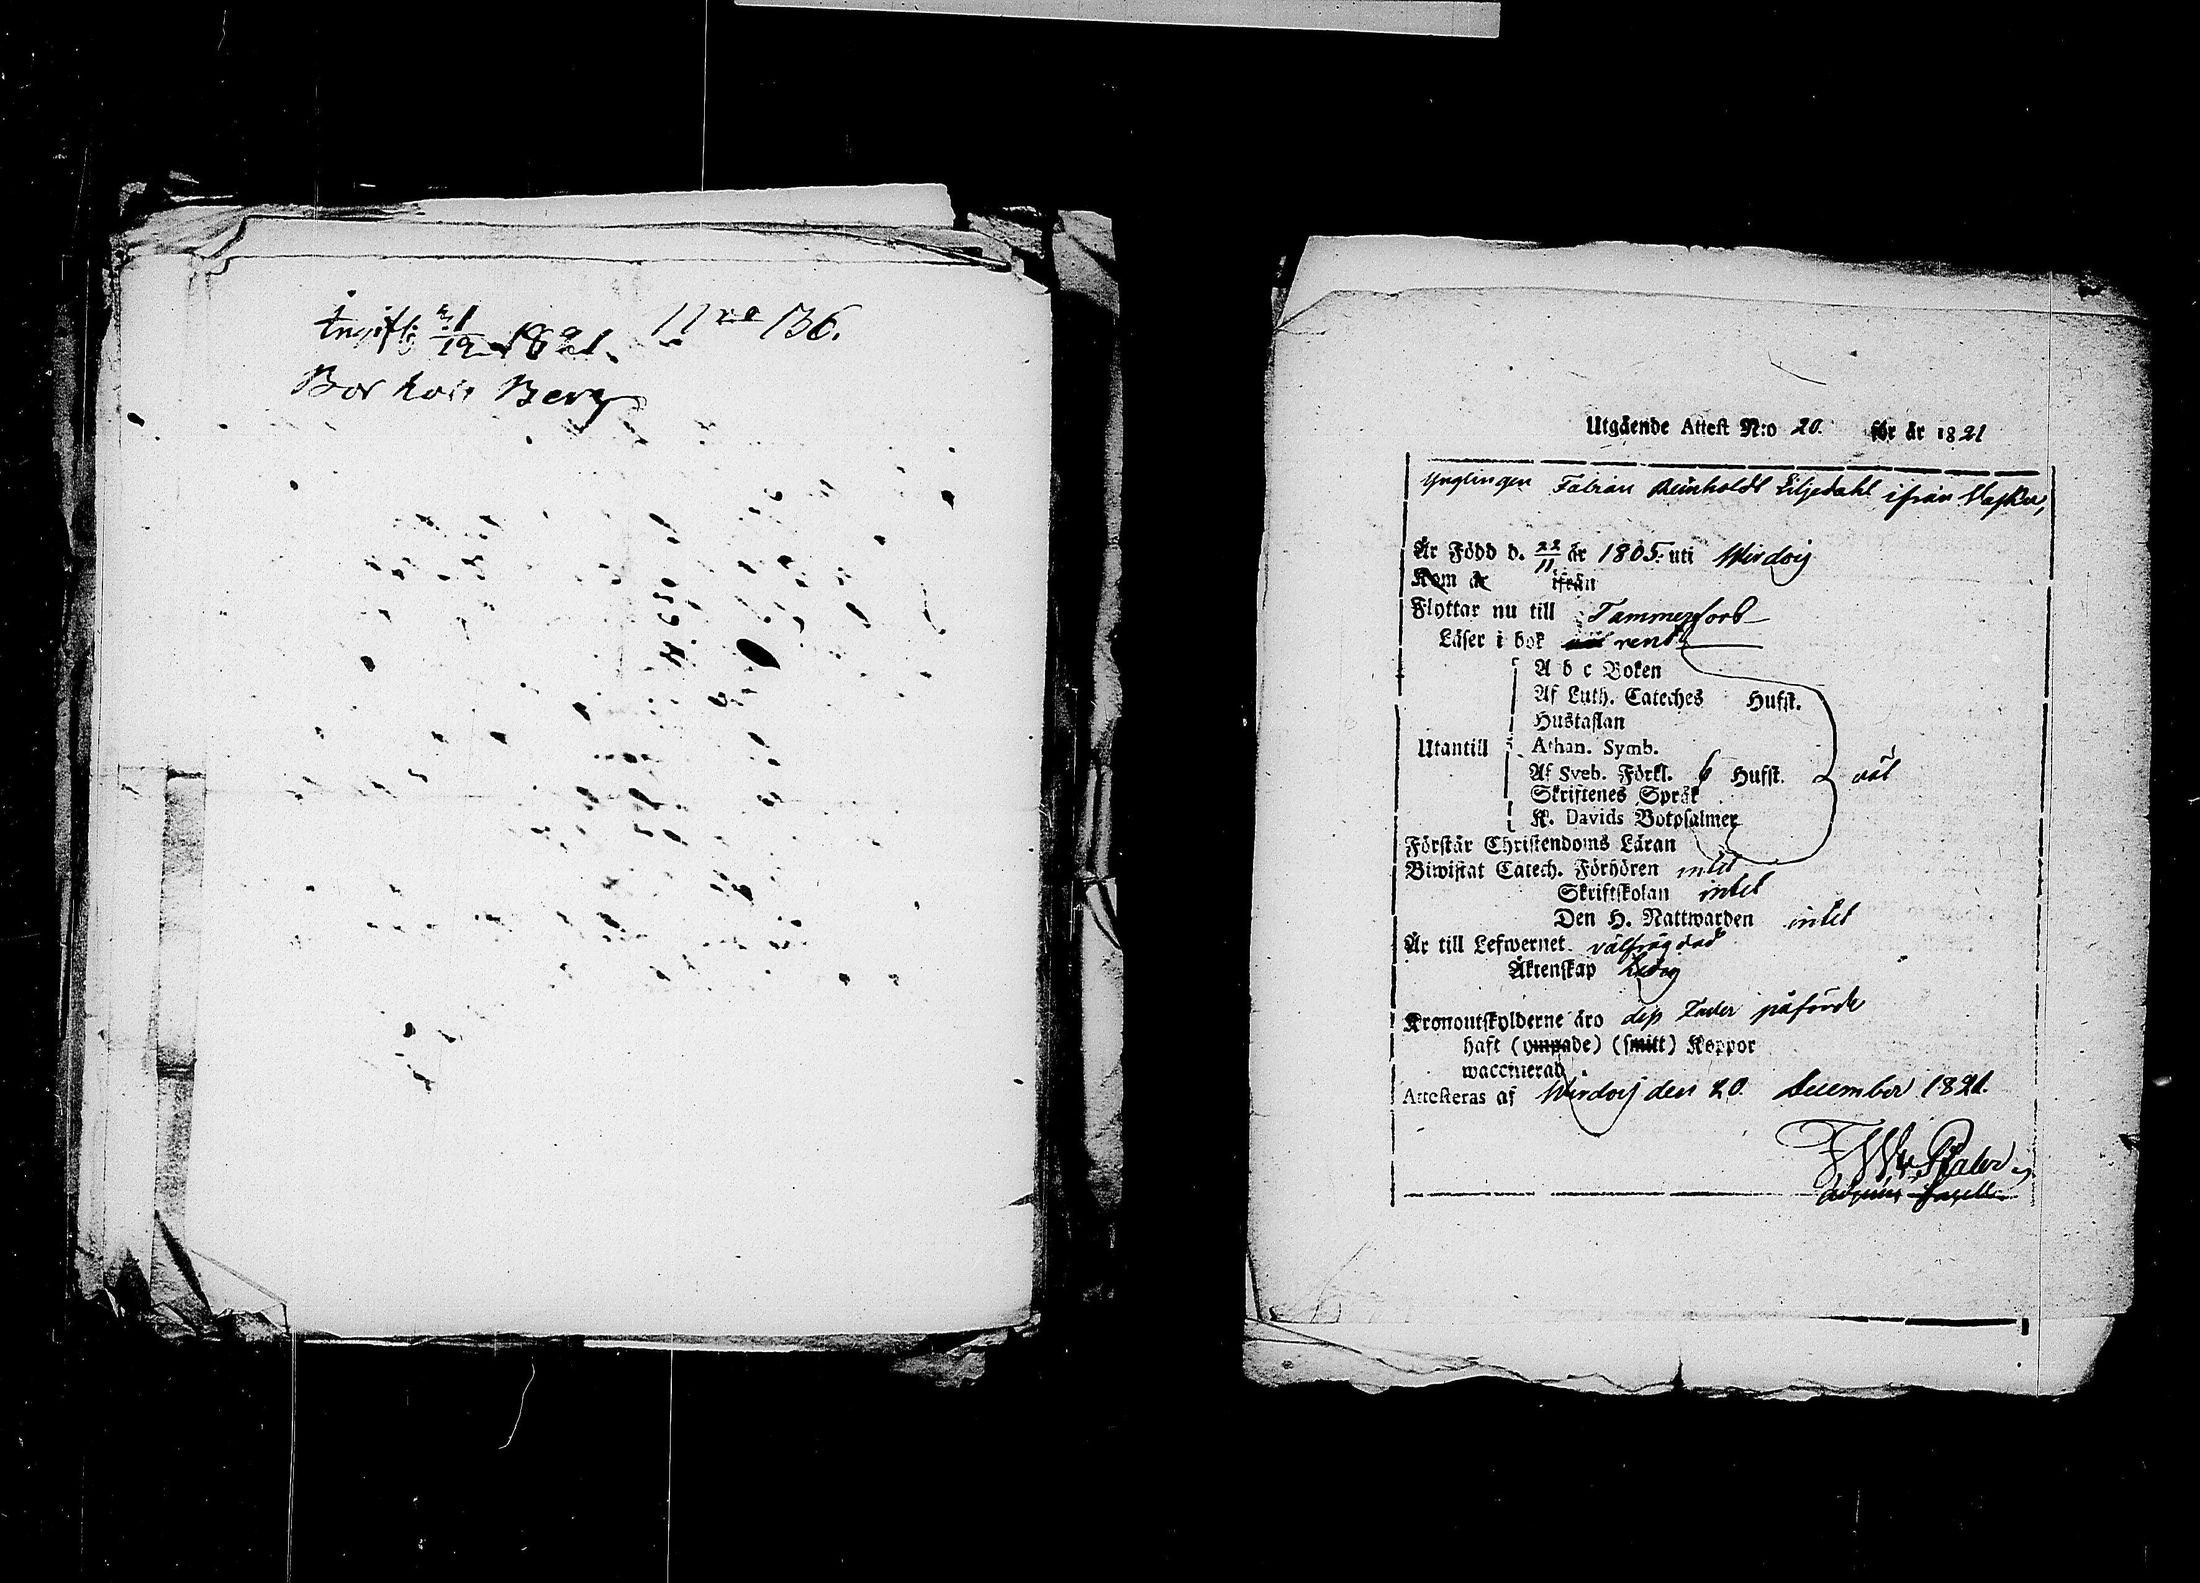 Ingift: 21/12 1821. N:ro 136.
Bor hos Berg
Utgående Attest N:o 20. för år 1821
Ynglingen Fabian Reinholdt Liljedahl ifrån
Är Född d. 22/11 år 1805. uti Wirdoij
Kom år ifrån
Flyttar nu till Tammerfors
Läser i bok rent
A b c Boken
Af Luth. Cateches Hufst.
Hustaflan
Utantill Athan. Symb.
Af Sveb. Förkl. 6 Hufst. väl
Skriftenes Språk
K. Davids Botpsalmer
Förstår Christendoms Läran
Biwistat Catech. Förhören intet
Skriftskolan intet
Den H. Nattwarden intet
Är till Lefwernet välfrägdad
Äktenskap Ledig
Kronoutskylderne äro dess Fader påförde
haft (ympade) (smitt) Koppor
waccinerad
Attesteras af Wirdoij den 20. December 1821.